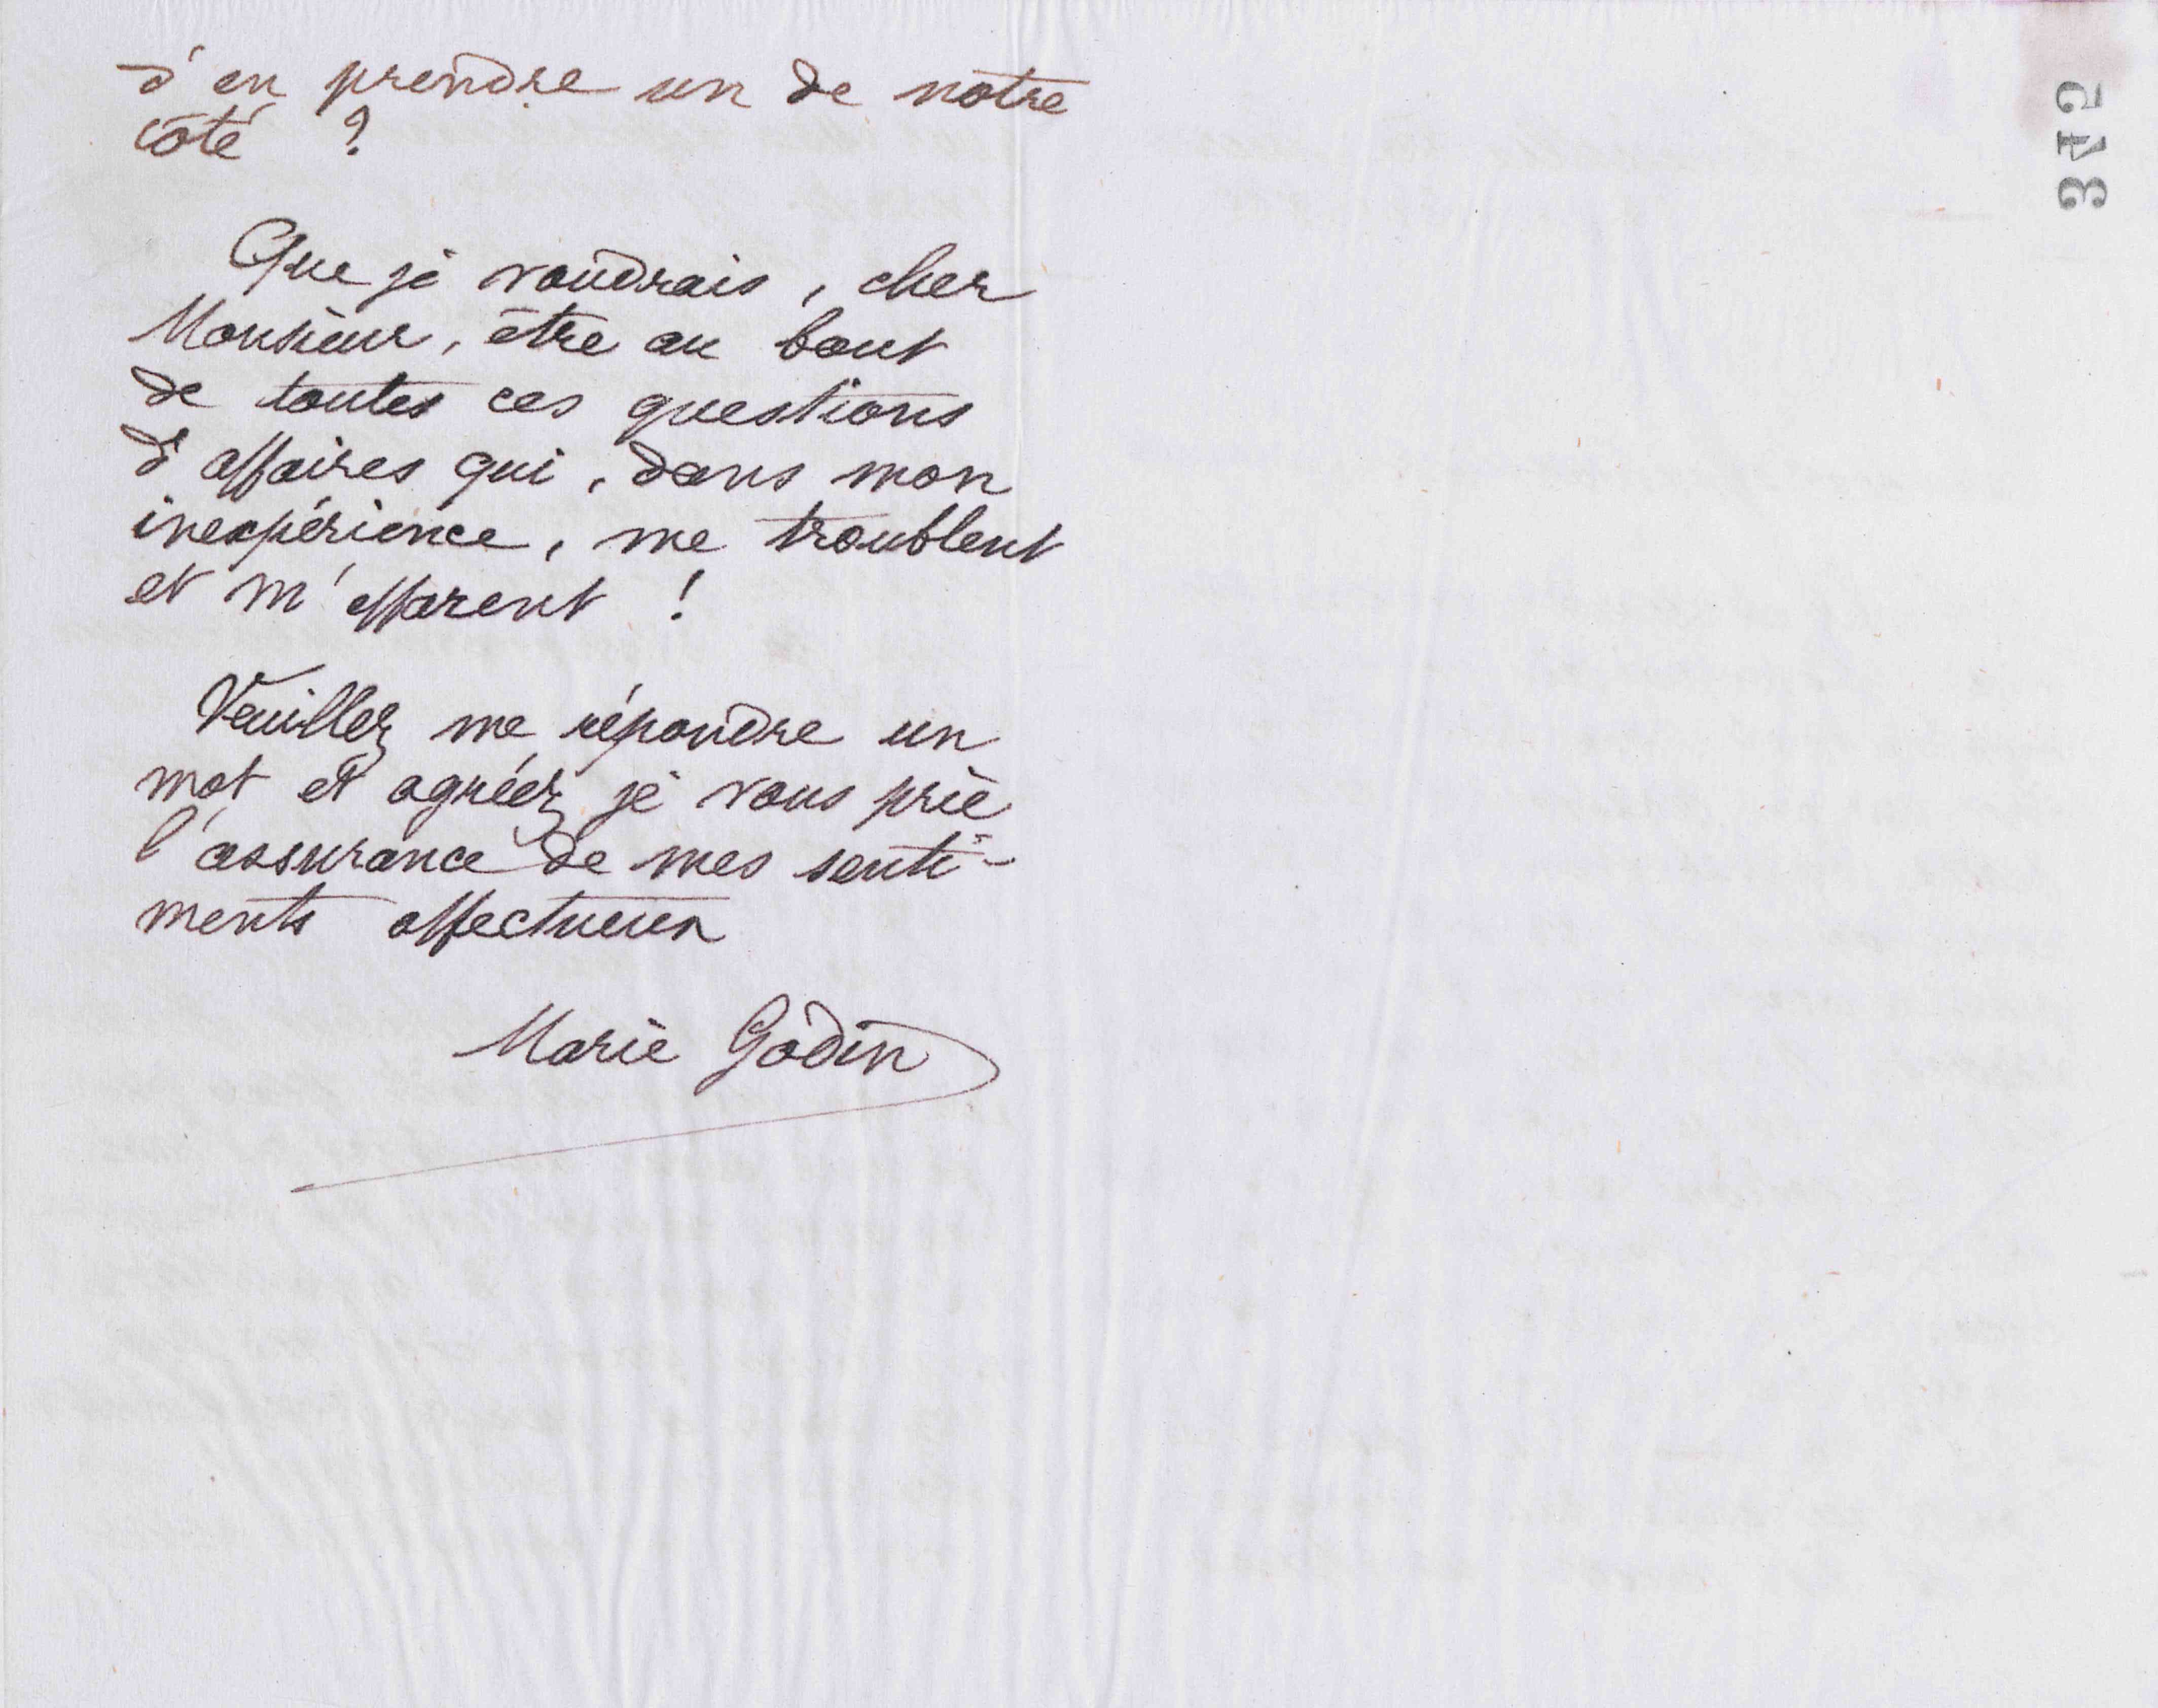 d'en prendre un de notre
côté ?
Que je voudrais, cher
Monsieur, être au bout
de toutes ces questions
d'affaires qui, dans mon
inexpérience, me troublent
et m'effarent !
Veuillez me répondre un
mot et agréez je vous prie
l'assurance de mes senti-
ments affectueux
Marie Godin
342